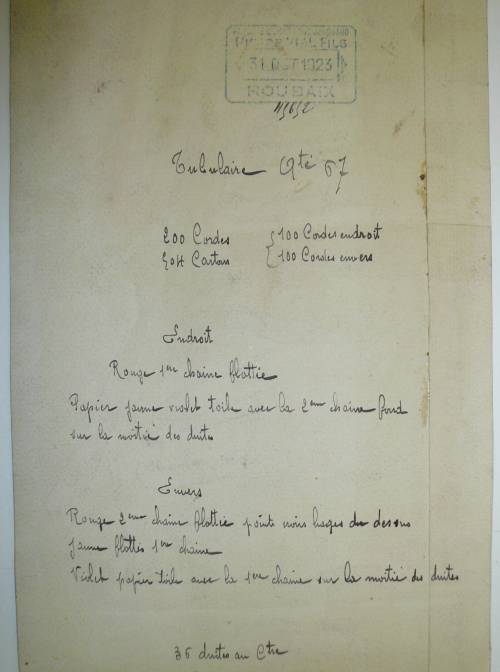 31 OCT 1923
ROUBAIX
Tubulaire Qté 67
200 Cordes { 100 Cordes endroit
Cartons { 100 Cordes envers
Endroit
Rouge 1ère chaine flottée
Papier jaune violet toile avec la 2eme chaine fond
sur la moitié des duites
Envers
Rouge 2eme chaine flottée points du dessus
Jaune flottés 1ere chaine
Violet papier toile avec la 1ere chaine sur la moitié des duites
36 duites au Ctre